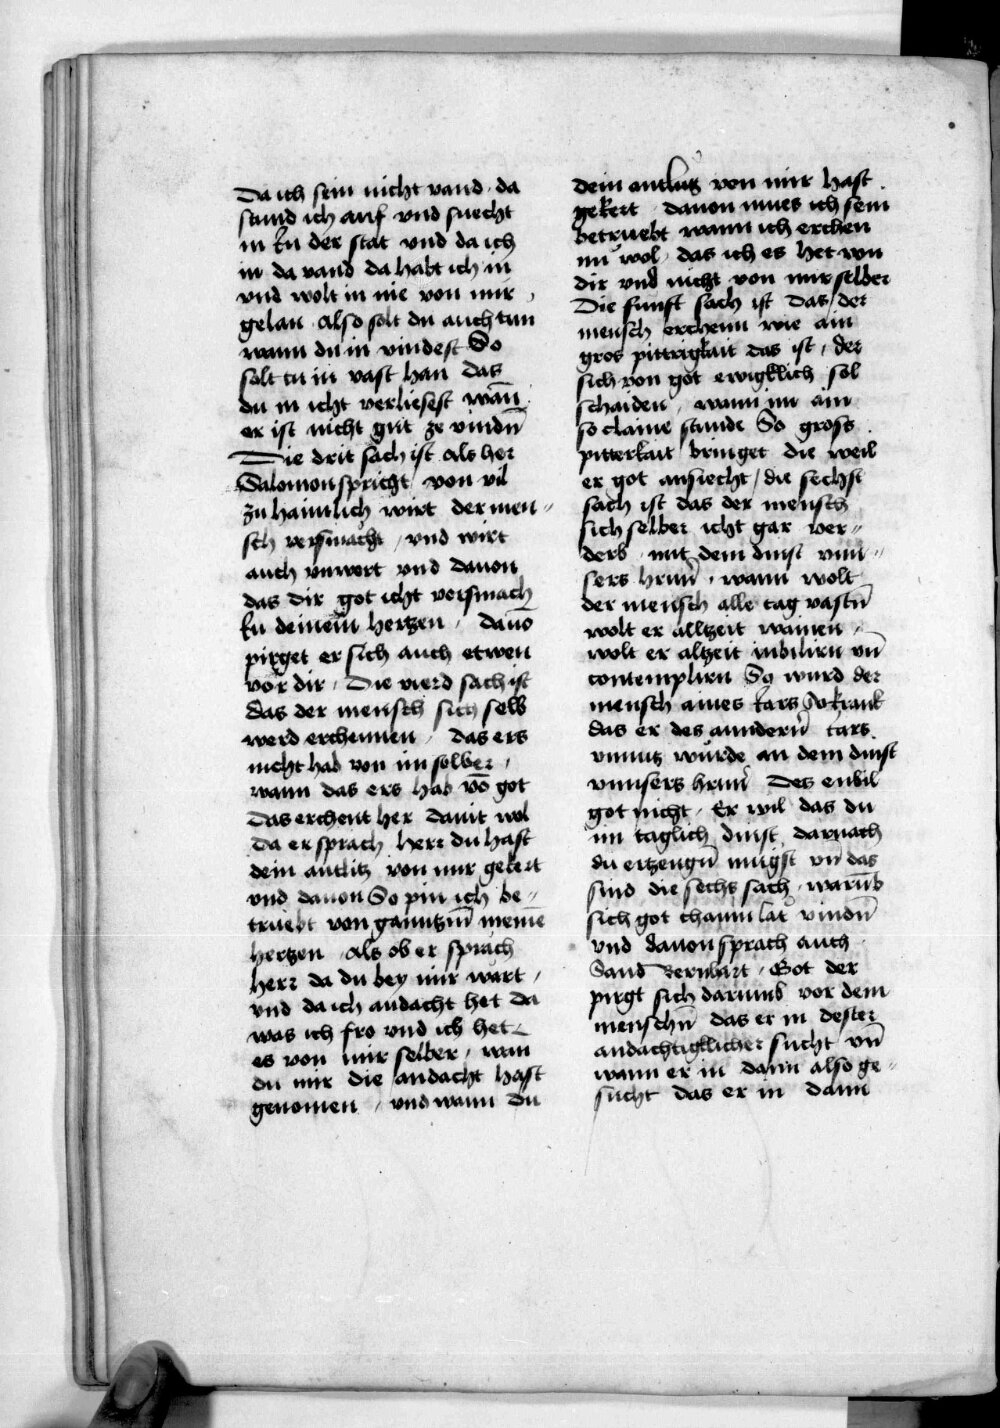 Da ich sein nicht vand · da
stund ich auf vnd suecht
in in der stat vnd da ich
in da vand da habt ich in
vnd wolt in nie von mir
gelan Also solt du auch tun
wann du in vindest So
solt tu in vast han das
du in icht verliesest wān
er ist nicht gůt ze vindn̄
Die drit sach ist als her
Salomon spricht von vil
zu haimlich wirt der men„
sch versmacht / vnd wirt
auch vnwert vnd dauon
das dir got icht versmach
in deinem hertzen / dauō
pirget er sich auch etwen
vor dir / Die vierd sach ist
das der mensch sich selb
werd erchennen / das ers
nicht hab von im selber /
wann das ers hab vō got
Das erchent her dauit wol
Da er sprach herr du hast
dein antlitz von mir gekert
vnd dauon So pin ich be„
truebt von ganntzm̄ meinē
hertzen Als ob er sprach
herr da du bey mir wart /
vnd da ich andacht het da
was ich fro vnd ich het
es von mir selber / wan
du mir die andacht hast
genomen / vnd wann du
dein antlutz von mir hast
gekert dauon mues ich sein
betruebt wann ich erchen
nu wol das ich es het von
dir vnd nicht von mir selber
Die funft sach ist das der
mensch erchenn wie ain
gros pittrigkait das ist / der
sich von got ewigklich sol
schaiden / wann im ain
so claine stunde So gross
pitterkait bringet die weil
er got ansiecht / die sechst
sach ist das der mensch
sich selber icht gar ver„
derb mit dem dinst vnn„
sers hrnn̄ / wann wolt
der mensch alle tag vastn̄
wolt er alltzeit wainen /
wolt er altzeit iubilirn vn̄
contemplirn So wurd der
mensch aines tars so krank
das er des anndern̄ tars
vnnutz wurde an dem dinst
vnnsers hrnn̄ Des enwil
got nicht / Er wil das du
im taglich dinst darnach
du ertzeugn̄ mugst vn̄ das
sind die sechs sach / warūb
sich got chaum lat vindn̄
vnd dauon sprach auch
Sand Bernhart / Got der
pirgt sich darumb vor dem
menschn̄ das er in dester
andachtigklicher sucht vn̄
wann er in dann also ge„
sucht das er in dann